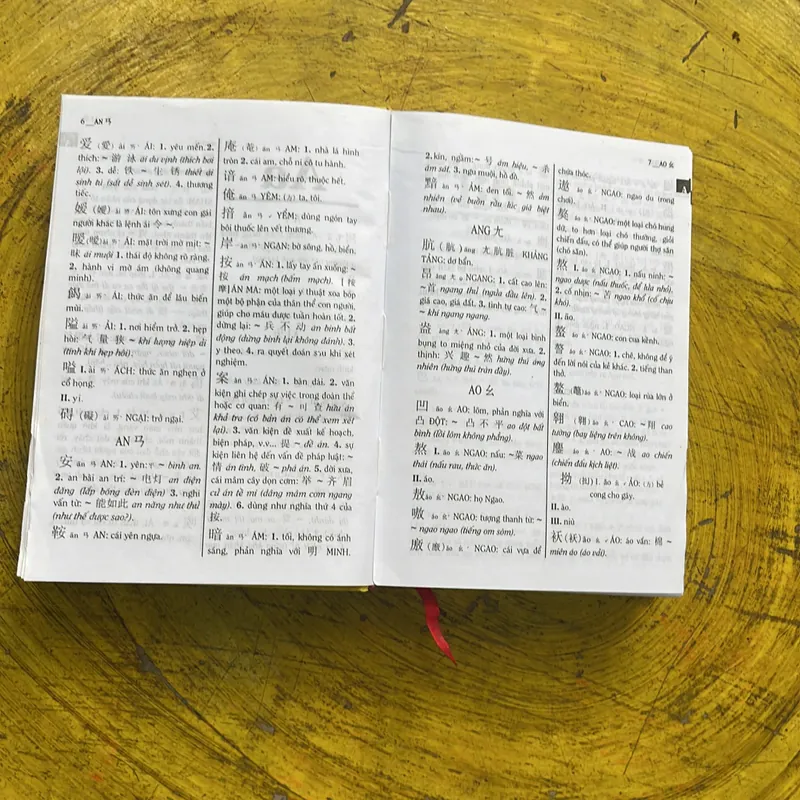 6__AN ㄢ
爱 (愛) ài ㄞˋ ÁI: 1. yêu mến. 2.
thích: ~ 游 泳 ái du vịnh (thích bơi
lội). 3. dễ: 铁 ~ 生 锈 thiết ái
sinh tú (sắt dễ sinh sét). 4. thương
tiếc.
嫒 (嬡) ài ㄞˋ ÁI: tôn xưng con gái
người khác là lệnh ái 令 ~.
暧(曖) ài ㄞˋ ÁI: mặt trời mờ mịt: ~
昧 ái muội 1. thái độ không rõ ràng.
2. hành vi mờ ám (không quang
minh).
餲 ài ㄞˋ ÁI: thức ăn để lâu biến
mùi.
隘 ài ㄞˋ ÁI: 1. nơi hiểm trở. 2. hẹp
hòi: 气 量 狭 ~ khí lượng hiệp ải
(tính khí hẹp hòi).
嗌 I. ài ㄞˋ ÁCH: thức ăn nghẹn ở
cổ họng.
II. yì.
碍 (礙) ài ㄞˋ NGẠI: trở ngại.
AN ㄢ
安 ān ㄢ AN: 1. yên: ~ bình an.
2. an bài an trí: ~ 电灯 an điện
đăng (lắp bóng đèn điện) 3. nghi
vấn từ: ~ 能如此 an năng như thử
(như thế được sao?).
鞍 ān ㄢ AN: cái yên ngựa.
庵 (菴) ān ㄢ AM: 1. nhà lá hình
tròn 2. cái am, chỗ ni cô tu hành.
谙 ān ㄢ AM: hiểu rõ, thuộc hết.
俺 ǎn ㄢˇ YÊM: ta, tôi.
揞 ǎn ㄢˇ YỂM: dùng ngón tay
bôi thuốc lên vết thương.
岸 àn ㄢˋ NGẠN: bờ sông, hồ, biển.
按 àn ㄢˋ ÁN: 1. lấy tay ấn xuống: ~
按 án mạch (bấm mạch). [ 按
摩]ÁN MA: một loại y thuật xoa bóp
một bộ phận của thân thể con người,
giúp cho máu được tuần hoàn tốt. 2.
dừng lại: ~ 兵 不 动 án binh bất
động (dừng binh lại không đánh). 3.
y theo. 4. ra quyết đoán sau khi xét
nghiệm.
案 àn ㄢˋ ÁN: 1. bàn dài. 2. văn
kiện ghi chép sự việc trong đoàn thể
hoặc cơ quan: 有 ~ 可 查 hữu án
khả tra (có bản án có thể xem xét
lại). 3. văn kiện đề xuất kế hoạch,
biện pháp, v.v... 提 ~ đề án. 4. sự
kiện liên hệ đến vấn đề pháp luật: ~
情 án tình, 破 ~ phá án. 5. đời xưa,
cái mâm cây dọn cơm: 举 ~ 齐 眉
cử án tề mi (dâng mâm cơm ngang
mày). 6. dùng như nghĩa thứ 4 của
按.
暗 àn ㄢˋ ÁM: 1. tối, không có ánh
sáng, phản nghĩa với 明 MINH.
7__AO ㄠ
2. kín, ngầm: ~ 号 ám hiệu, ~ 杀
ám sát. 3. ngu muội, hồ đồ.
黯 àn ㄢˋ ÁM: đen tối. ~ 然 ám
nhiên (vẻ buồn rầu lúc giã biệt
nhau).
ANG ㄤ
肮 (骯) āng ㄤ 肮脏 KHẢNG
TẢNG: dơ bẩn.
昂 áng ㄤˊ NGANG: 1. cất cao lên:
~ 首 ngang thủ (ngửa đầu lên). 2.
giá cao, giá đắt. 3. tình tự cao: 气 ~
~ khí ngang ngang.
盎 àng ㄤˋ ÁNG: 1. một loại bình
bụng to miệng nhỏ của đời xưa. 2.
thịnh: 兴 趣 ~ 然 hứng thú áng
nhiên (hứng thú tràn đầy).
AO ㄠ
凹 āo ㄠ AO: lõm, phản nghĩa với
凸 ĐỘT: ~ 凸 不 平 ao đột bất
bình (lồi lõm không phẳng).
熬 I. āo ㄠ NGAO: nấu: ~菜 ngao
thái (nấu rau, thức ăn).
II. áo.
敖áo ㄠˊ NGAO: họ Ngao.
嗷 áo ㄠˊ NGAO: tượng thanh từ: ~
~ ngao ngao (tiếng om sòm).
廒 (厫) áo ㄠˊ NGAO: cái vựa để
chứa thóc.
遨 áo ㄠˊ NGAO: ngao du (rong
chơi).
獒 áo ㄠˊ NGAO: một loại chó hung
dữ, to hơn loại chó thường, giỏi
chiến đấu, có thể giúp người thợ săn
(chó săn).
熬 I. áo ㄠˊ NGAO: 1. nấu ninh: ~
ngao dược (nấu thuốc, để lửa nhỏ).
2. cố nhịn: ~ 苦 ngao khổ (cố chịu
khó).
II. āo.
螯 áo ㄠˊ NGAO: con cua kềnh.
謷 áo ㄠˊ NGAO: 1. chê, không để ý
đến lời nói của kẻ khác. 2. tiếng than
thở.
鳌 (鼇) áo ㄠˊ NGAO: loại rùa lớn ở
biển.
翱 (翺) áo ㄠˊ CAO: ~翔 cao
tường (bay liệng trên không).
鏖 áo ㄠˊ AO: ~ 战 ao chiến
(chiến đấu kịch liệt).
拗 (抝) I. ǎo ㄠˇ ẢO: bẻ
cong cho gãy.
II. ào.
III. niù
袄 (襖) ǎo ㄠˇ ÁO: áo vắn: 棉 ~
miên áo (áo vải).